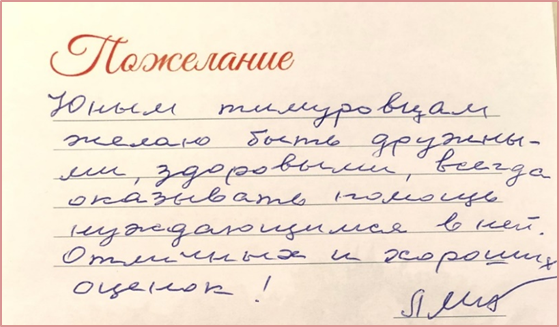 Пожелание
Юным тимуровцам
желаю быть дружны-
ми, здоровыми, всегда
оказывать помощь
нуждающимся в ней.
Отличных и хороших
оценок!